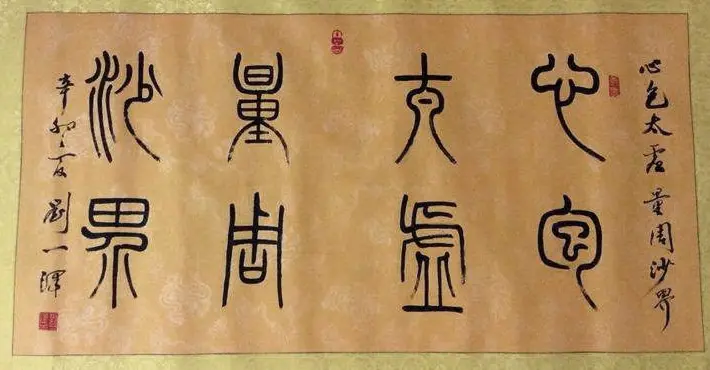 心包太虚量周沙界
心包
太虚
量周
沙界
辛卯之夏 劉一